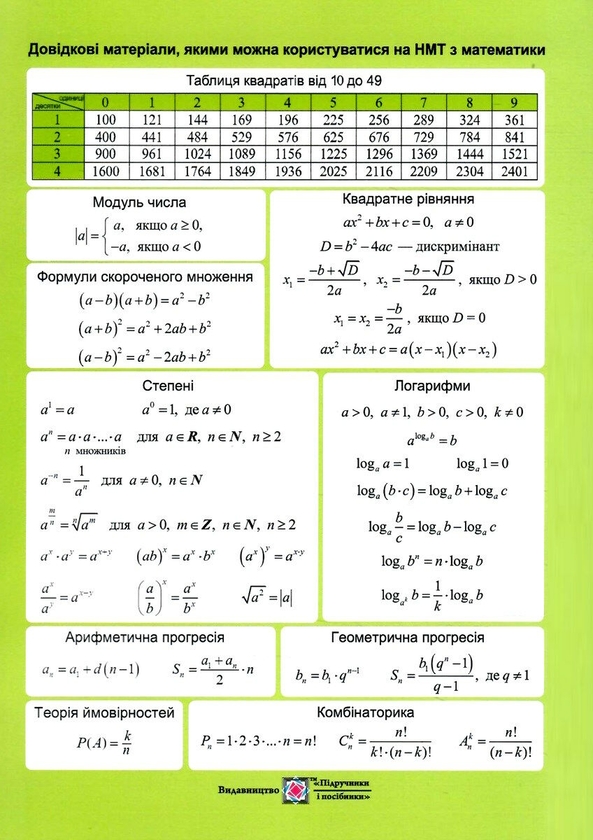 Довідкові матеріали, якими можна користуватися на НМТ з математики
Таблиця квадратів від 10 до 49
десятки одиниці 0 1 2 3 4 5 6 7 8 9
1 100 121 144 169 196 225 256 289 324 361
2 400 441 484 529 576 625 676 729 784 841
3 900 961 1024 1089 1156 1225 1296 1369 1444 1521
4 1600 1681 1764 1849 1936 2025 2116 2209 2304 2401
Модуль числа
|a| = { a, якщо a ≥ 0,
−a, якщо a < 0
Формули скороченого множення
(a − b)(a + b) = a² − b²
(a + b)² = a² + 2ab + b²
(a − b)² = a² − 2ab + b²
Квадратне рівняння
ax² + bx + c = 0, a ≠ 0
D = b² − 4ac — дискримінант
x₁ = (−b + √D)/(2a), x₂ = (−b − √D)/(2a), якщо D > 0
x₁ = x₂ = −b/(2a), якщо D = 0
ax² + bx + c = a(x − x₁)(x − x₂)
Степені
a¹ = a a⁰ = 1, де a ≠ 0
aⁿ = a·a·...·a для a ∈ R, n ∈ N, n ≥ 2
n множників
a⁻ⁿ = 1/aⁿ для a ≠ 0, n ∈ N
a^(m/n) = ⁿ√(a^m) для a > 0, m ∈ Z, n ∈ N, n ≥ 2
a^x · a^y = a^(x+y) (ab)^x = a^x · b^x (a^x)^y = a^(x·y)
a^x/a^y = a^(x−y) (a/b)^x = a^x/b^x √(a²) = |a|
Логарифми
a > 0, a ≠ 1, b > 0, c > 0, k ≠ 0
a^(log_a b) = b
log_a a = 1 log_a 1 = 0
log_a (b·c) = log_a b + log_a c
log_a b/c = log_a b − log_a c
log_a bⁿ = n · log_a b
log_(a^k) b = 1/k · log_a b
Арифметична прогресія
a_n = a₁ + d(n − 1) S_n = (a₁ + a_n)/2 · n
Геометрична прогресія
b_n = b₁ · q^(n−1) S_n = b₁(qⁿ − 1)/(q − 1), де q ≠ 1
Теорія ймовірностей
P(A) = k/n
Комбінаторика
P_n = 1·2·3·...·n = n! C_n^k = n!/(k!·(n − k)!) A_n^k = n!/(n − k)!
Видавництво ™ «Підручники
і посібники»